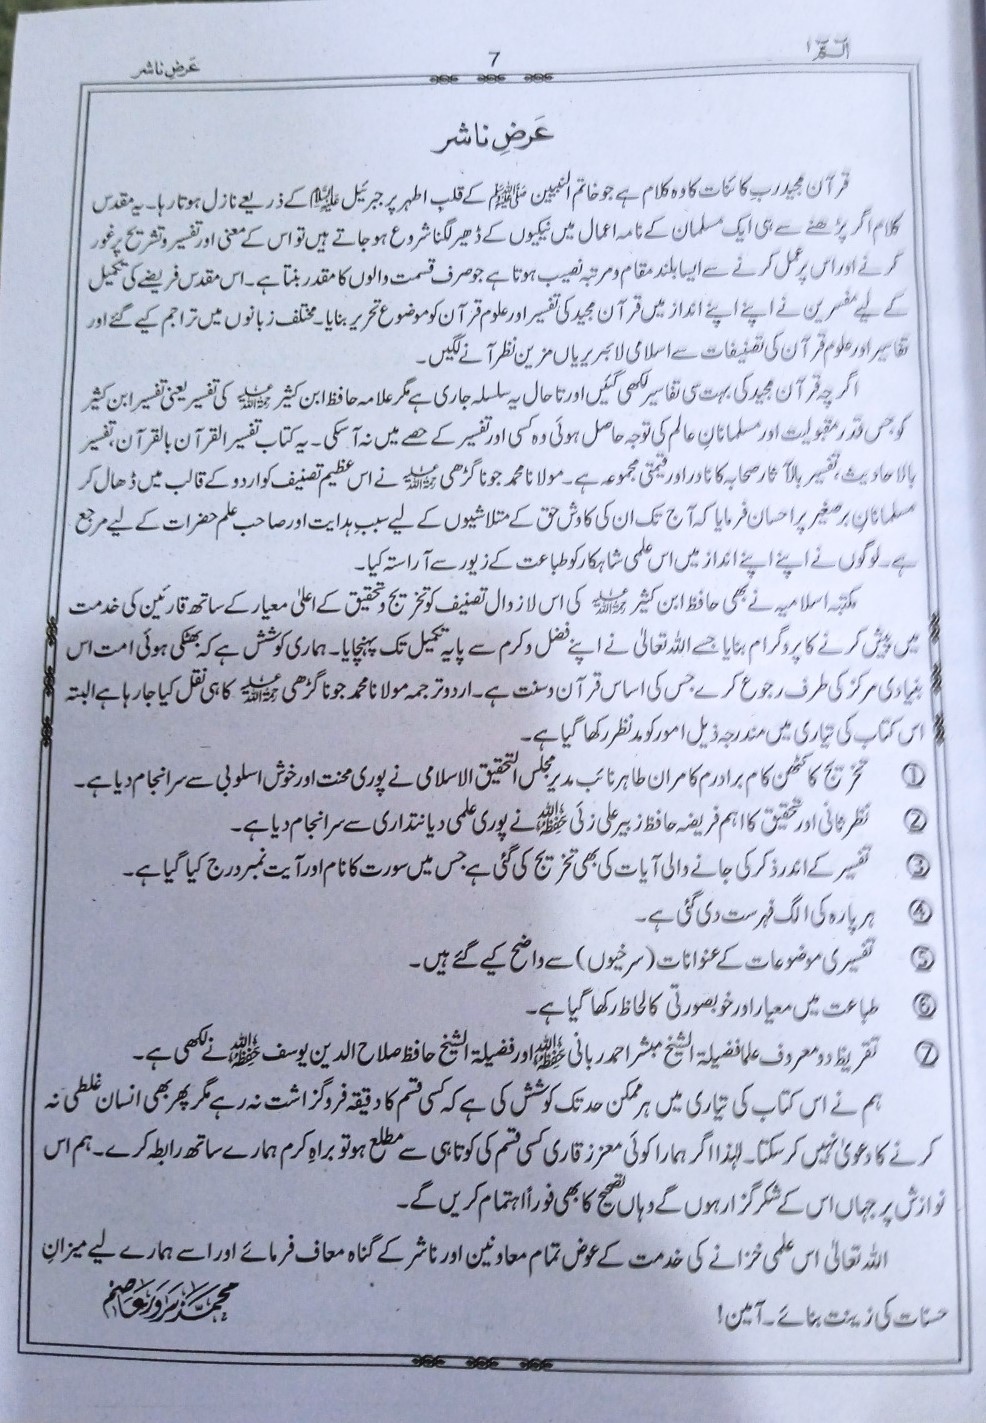 الٓمّٓ ١
7
عَرضِ ناشر
عَرضِ ناشر
قرآن مجید ربِ کائنات کا وہ کلام ہے جو خاتم النبیین ﷺ کے قلبِ اطہر پر جبرئیل علیہ السلام کے ذریعے نازل ہوتا رہا۔ یہ مقدس
کلام اگر پڑھنے سے ہی ایک مسلمان کے نامہ اعمال میں نیکیوں کے ڈھیر لگنا شروع ہو جاتے ہیں تو اس کے معنی اور تفسیر و تشریح پر غور
کرنے اور اس پر عمل کرنے سے ایسا بلند مقام و مرتبہ نصیب ہوتا ہے جو صرف قسمت والوں کا مقدر بنتا ہے۔ اس مقدس فریضے کی تکمیل
کے لیے مفسرین نے اپنے اپنے انداز میں قرآن مجید کی تفسیر اور علوم قرآن کو موضوع تحریر بنایا۔ مختلف زبانوں میں تراجم کیے گئے اور
تفاسیر اور علوم قرآن کی تصنیفات سے اسلامی لائبریریاں مزین نظر آنے لگیں۔
اگرچہ قرآن مجید کی بہت سی تفاسیر لکھی گئیں اور تا حال یہ سلسلہ جاری ہے مگر علامہ حافظ ابن کثیر رحمۃ اللہ علیہ کی تفسیر یعنی تفسیر ابن کثیر
کو جس قدر مقبولیت اور مسلمانانِ عالم کی توجہ حاصل ہوئی وہ کسی اور تفسیر کے حصے میں نہ آ سکی۔ یہ کتاب تفسیر القرآن بالقرآن، تفسیر
بالاحادیث، تفسیر بالآثار صحابہ کا نادر اور قیمتی مجموعہ ہے۔ مولانا محمد جونا گڑھی رحمۃ اللہ علیہ نے اس عظیم تصنیف کو اردو کے قالب میں ڈھال کر
مسلمانانِ برصغیر پر احسان فرمایا کہ آج تک ان کی کاوش حق کے متلاشیوں کے لیے سببِ ہدایت اور صاحب علم حضرات کے لیے مرجع
ہے۔ لوگوں نے اپنے اپنے انداز میں اس علمی شاہکار کو طباعت کے زیور سے آراستہ کیا۔
مکتبہ اسلامیہ نے بھی حافظ ابن کثیر رحمۃ اللہ علیہ کی اس لازوال تصنیف کو تخریج و تحقیق کے اعلیٰ معیار کے ساتھ قارئین کی خدمت
میں پیش کرنے کا پروگرام بنایا جسے اللہ تعالیٰ نے اپنے فضل و کرم سے پایہ تکمیل تک پہنچایا۔ ہماری کوشش ہے کہ بھٹکی ہوئی امت اس
بنیادی مرکز کی طرف رجوع کرے جس کی اساس قرآن و سنت ہے۔ اردو ترجمہ مولانا محمد جونا گڑھی رحمۃ اللہ علیہ کا ہی نقل کیا جا رہا ہے البتہ
اس کتاب کی تیاری میں مندرجہ ذیل امور کو مدنظر رکھا گیا ہے۔
① تخریج کا کٹھن کام برادرم کامران طاہر نائب مدیر مجلس التحقیق الاسلامی نے پوری محنت اور خوش اسلوبی سے سرانجام دیا ہے۔
② نظر ثانی اور تحقیق کا اہم فریضہ حافظ زبیر علی زئی حفظہ اللہ نے پوری علمی دیانتداری سے سرانجام دیا ہے۔
③ تفسیر کے اندر ذکر کی جانے والی آیات کی بھی تخریج کی گئی ہے جس میں سورت کا نام اور آیت نمبر درج کیا گیا ہے۔
④ ہر پارہ کی الگ فہرست دی گئی ہے۔
⑤ تفسیری موضوعات کے عنوانات (سرخیوں) سے واضح کیے گئے ہیں۔
⑥ طباعت میں معیار اور خوبصورتی کا لحاظ رکھا گیا ہے۔
⑦ تقریظ دو معروف علما فضیلۃ الشیخ مبشر احمد ربانی حفظہ اللہ اور فضیلۃ الشیخ حافظ صلاح الدین یوسف حفظہ اللہ نے لکھی ہے۔
ہم نے اس کتاب کی تیاری میں ہر ممکن حد تک کوشش کی ہے کہ کسی قسم کا دقیقہ فروگزاشت نہ رہے مگر پھر بھی انسان غلطی نہ
کرنے کا دعویٰ نہیں کر سکتا۔ لہٰذا اگر ہمارا کوئی معزز قاری کسی قسم کی کوتاہی سے مطلع ہو تو براہِ کرم ہمارے ساتھ رابطہ کرے۔ ہم اس
نوازش پر جہاں اس کے شکر گزار ہوں گے وہاں تصحیح کا بھی فوراً اہتمام کریں گے۔
اللہ تعالیٰ اس علمی خزانے کی خدمت کے عوض تمام معاونین اور ناشر کے گناہ معاف فرمائے اور اسے ہمارے لیے میزانِ
حسنات کی زینت بنائے۔ آمین!
محمد سرور عاصم